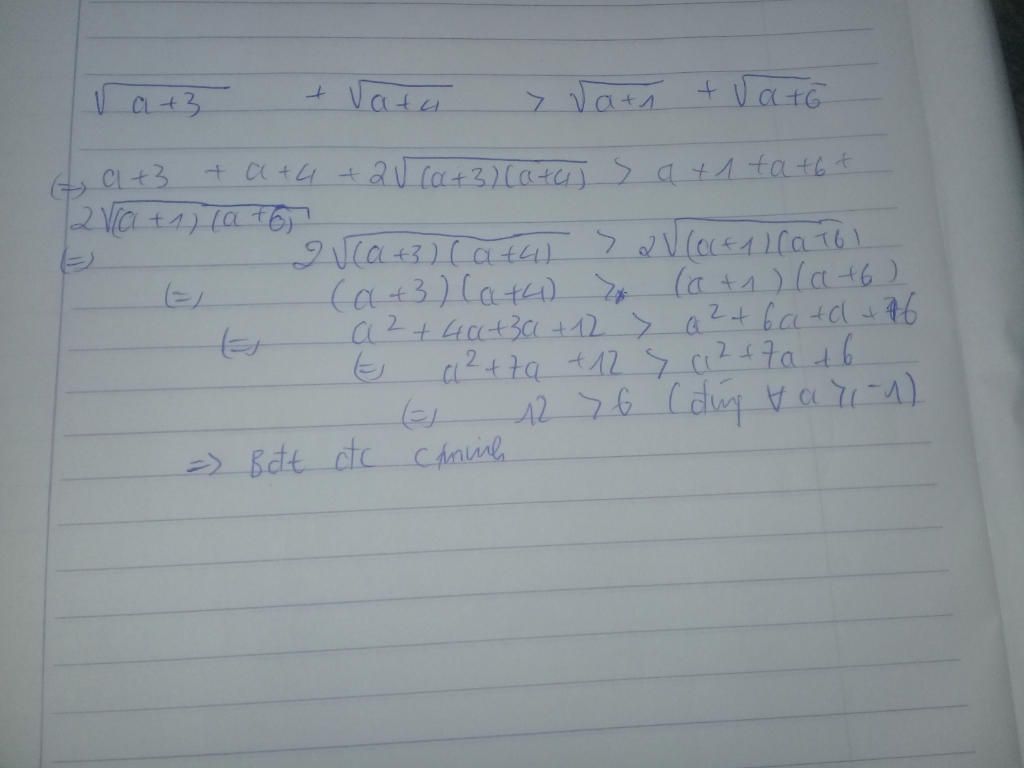 √(a+3) + √(a+4) > √(a+1) + √(a+6)
(=) a+3 + a+4 + 2√((a+3)(a+4)) > a+1+a+6+
2√((a+1)(a+6))
(=) 2√((a+3)(a+4)) > 2√((a+1)(a+6))
(=) (a+3)(a+4) > (a+1)(a+6)
(=) a²+4a+3a+12 > a²+6a+a+6
(=) a²+7a+12 > a²+7a+6
(=) 12 > 6 (đúng ∀ a ≥ -1)
=> Bđt đc c/minh